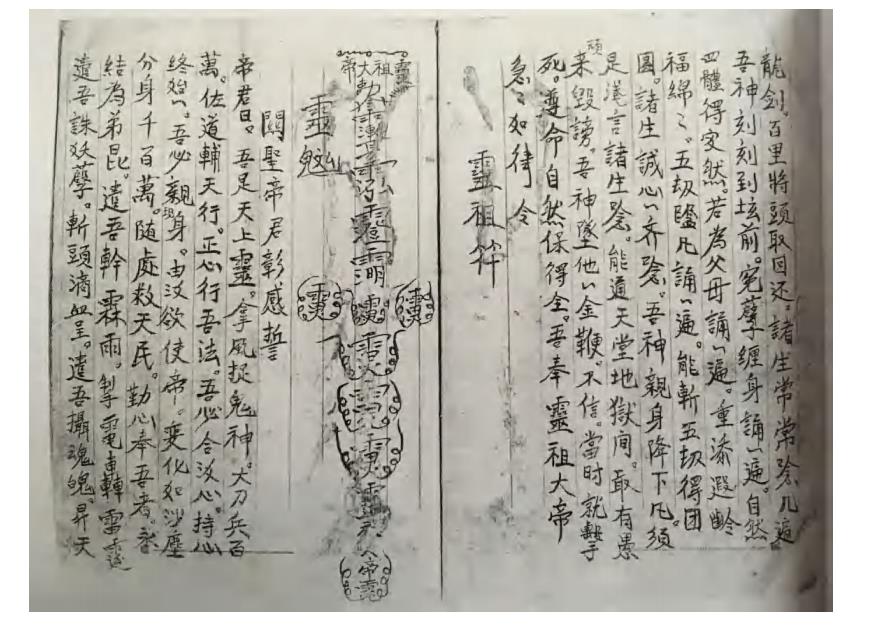 龍劍。百里將頭取回还。諸生常常唸几遍
吾神刻刻到坛前。冤孽纏身誦一遍。自然
四體得安然。若為父母誦一遍。重添遐齡
福綿々。五劫臨凡誦一遍。能斬五劫得团
圆。諸生誠心一齐唸。吾神親身降下凡。须
是淺言諸生唸。能通天堂地獄間。敢有愚
頑
来毀謗。吾神墜他一金鞭。不信。當时就擊手
死。遵命自然保得全。吾奉靈祖大帝
急々如律令
靈祖符
靈祖大帝
靈
靈
大帝靈
靈
關聖帝君彰感誓
帝君曰。吾是天上靈。拿風捉鬼神。大刀兵百
萬。佐道輔天行。正心行吾法。吾必合汝心。持心
终始一。吾必親身。由汝欲使帝。变化如沙塵
分身千百萬。随處救天民。勤心奉吾者。
結為弟昆。遣吾幹霖雨。掣電轉雷
遣吾誅妖孽。斬頭滴血呈。遣吾攝魂魄。昇天